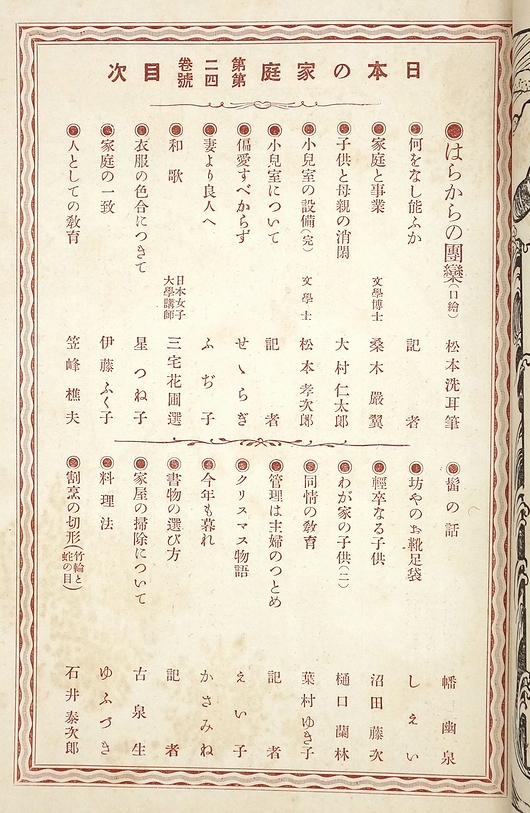 日本の家庭 第二卷 第四號 目次
はらからの團欒(口繪) 松本洗耳筆
何をなし能ふか 記者
家庭と事業 文學博士 桑木嚴翼
子供と母親の消閑 大村仁太郎
小兒室の設備(完) 文學士 松本孝次郎
小兒室について 記者
偏愛すべからず せゝらぎ
妻より良人へ ふぢ子
和歌 日本女子大學講師 三宅花圃選
衣服の色合につきて 星つね子
家庭の一致 伊藤ふく子
人としての敎育 笠峰樵夫
髷の話 幡幽泉
坊やのお靴足袋 しえい
輕卒なる子供 沼田藤次
わが家の子供(二) 樋口蘭林
同情の敎育 葉村ゆき子
管理は主婦のつとめ 記者
クリスマス物語 えい子
今年も暮れ かさみね
書物の選び方 記者
家屋の掃除について 古泉生
料理法 ゆふづき
割烹の切形(竹輪と蛇の目) 石井泰次郎